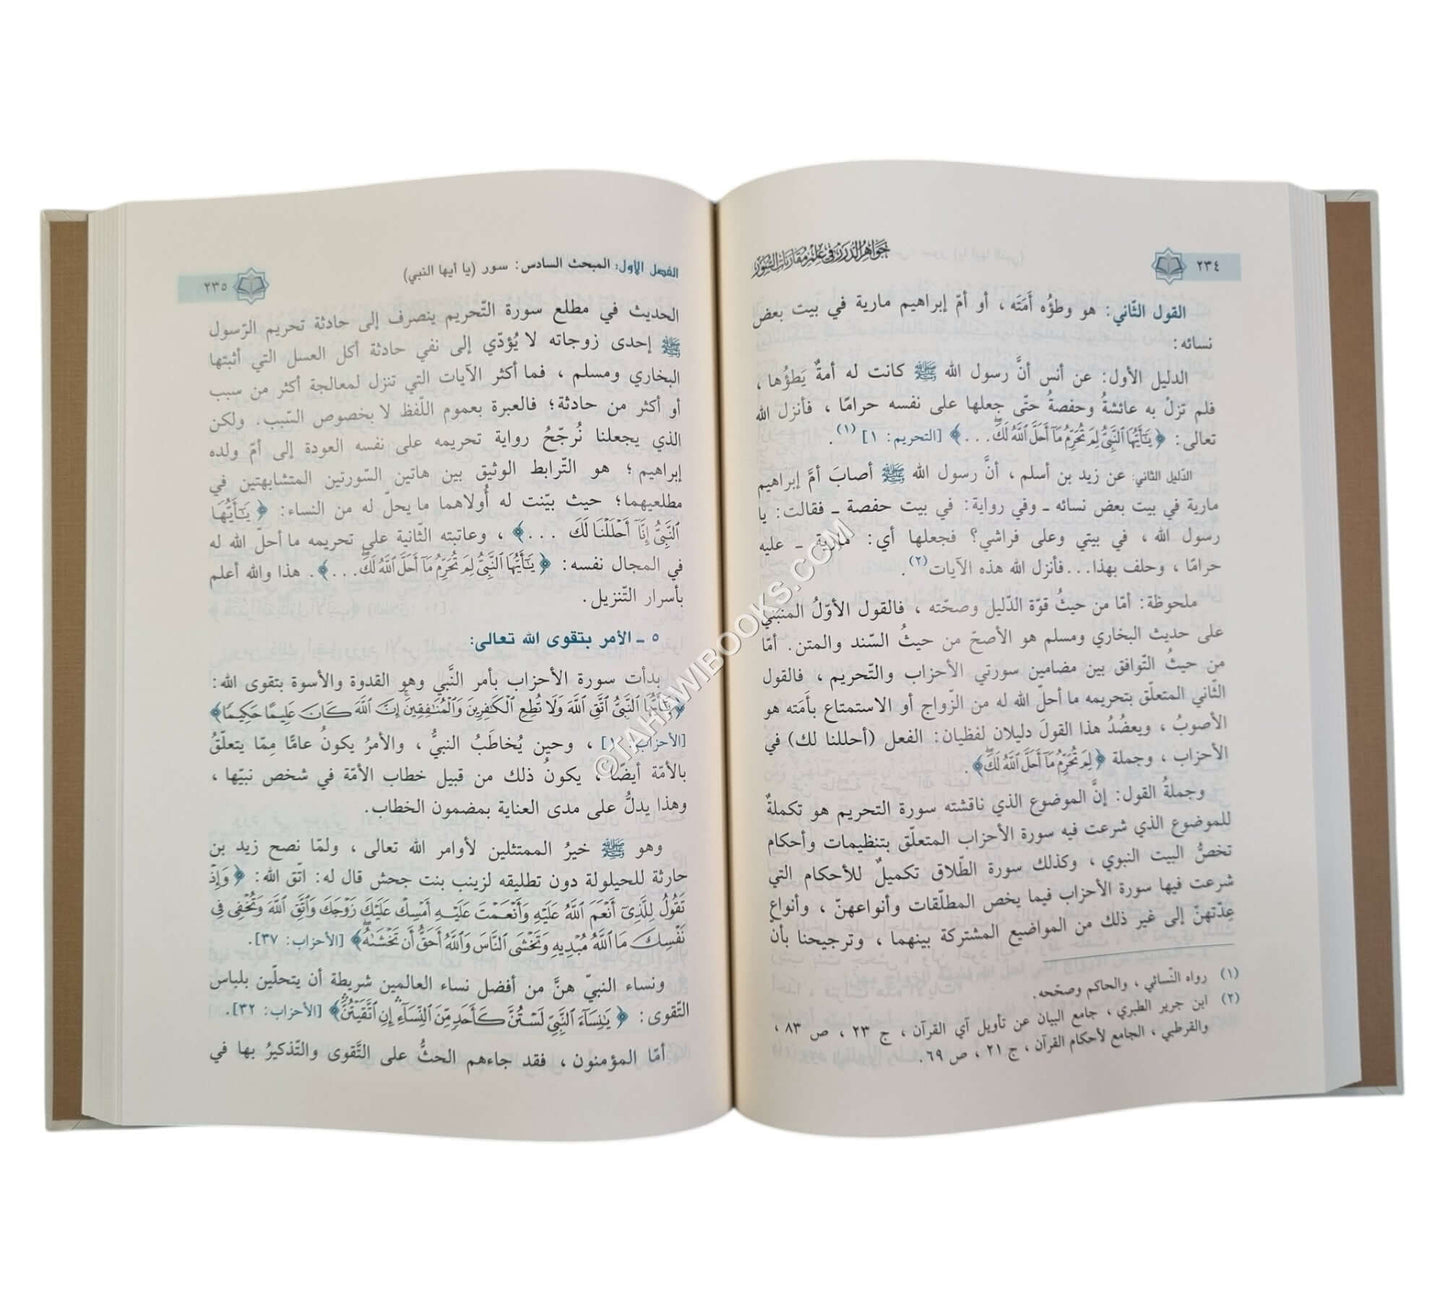 ٢٣٤
جواهر الدرر في علم مقاربات السور
القول الثّاني: هو وطؤُه أَمَتَه ، أو أمّ إبراهيم مارية في بيت بعض
نسائه:
الدليل الأول: عن أنس أنَّ رسول الله ﷺ كانت له أمةٌ يَطؤُها ،
فلم تزلْ به عائشةُ وحفصةُ حتّى جعلها على نفسه حرامًا ، فأنزل الله
تعالى: ﴿يَـٰٓأَيُّهَا ٱلنَّبِيُّ لِمَ تُحَرِّمُ مَآ أَحَلَّ ٱللَّهُ لَكَ...﴾ [التحريم: ١](١).
الدّليل الثاني: عن زيد بن أسلم ، أنَّ رسول الله ﷺ أصابَ أمَّ إبراهيم
مارية في بيت بعض نسائه ـ وفي رواية: في بيت حفصة ـ فقالت: يا
رسول الله ، في بيتي وعلى فراشي؟ فجعلها أي: مارية ـ عليه
حرامًا ، وحلف بهذا...فأنزل الله هذه الآيات(٢).
ملحوظة: أمّا من حيثُ قوّة الدّليل وصحّته ، فالقول الأوّلُ المنبني
على حديث البخاري ومسلم هو الأصحّ من حيثُ السّند والمتن. أمّا
من حيثُ التّوافق بين مضامين سورتي الأحزاب والتّحريم ، فالقول
الثّاني المتعلّق بتحريمه ما أحلّ الله له من الزّواج أو الاستمتاع بأَمَته هو
الأصوبُ ، ويعضُدُ هذا القولَ دليلان لفظيان: الفعل (أحللنا لك) في
الأحزاب ، وجملة ﴿لِمَ تُحَرِّمُ مَآ أَحَلَّ ٱللَّهُ لَكَ﴾.
وجملةُ القول: إنَّ الموضوع الذي ناقشته سورة التحريم هو تكملةٌ
للموضوع الذي شرعت فيه سورة الأحزاب المتعلّق بتنظيمات وأحكام
تخصُّ البيت النبوي ، وكذلك سورة الطّلاق تكميلٌ للأحكام التي
شرعت فيها سورة الأحزاب فيما يخص المطلّقات وأنواعهنّ ، وأنواع
عِدّتهنّ إلى غير ذلك من المواضيع المشتركة بينهما ، وترجيحنا بأنّ
(١) رواه النّسائي ، والحاكم وصحّحه.
(٢) ابن جرير الطبري ، جامع البيان عن تأويل آي القرآن ، ج ٢٣ ، ص ٨٣ ،
والقرطبي ، الجامع لأحكام القرآن ، ج ٢١ ، ص ٦٩.
الفصل الأول: المبحث السادس: سور (يا أيها النبي)
٢٣٥
الحديث في مطلع سورة التّحريم ينصرف إلى حادثة تحريم الرّسول
ﷺ إحدى زوجاته لا يُؤدّي إلى نفي حادثة أكل العسل التي أثبتها
البخاري ومسلم ، فما أكثر الآيات التي تنزل لمعالجة أكثر من سبب
أو أكثر من حادثة؛ فالعبرة بعموم اللّفظ لا بخصوص السّبب. ولكن
الذي يجعلنا نُرجّحُ رواية تحريمه على نفسه العودة إلى أمّ ولده
إبراهيم؛ هو التّرابط الوثيق بين هاتين السّورتين المتشابهتين في
مطلعيهما؛ حيث بيّنت له أولاهما ما يحلّ له من النساء: ﴿يَـٰٓأَيُّهَا
ٱلنَّبِيُّ إِنَّآ أَحْلَلْنَا لَكَ ...﴾ ، وعاتبته الثّانية على تحريمه ما أحلّ الله له
في المجال نفسه: ﴿يَـٰٓأَيُّهَا ٱلنَّبِيُّ لِمَ تُحَرِّمُ مَآ أَحَلَّ ٱللَّهُ لَكَ...﴾. هذا والله أعلم
بأسرار التّنزيل.
٥ ـ الأمر بتقوى الله تعالى:
بدأت سورة الأحزاب بأمر النَّبي وهو القدوة والأسوة بتقوى الله:
﴿يَـٰٓأَيُّهَا ٱلنَّبِيُّ ٱتَّقِ ٱللَّهَ وَلَا تُطِعِ ٱلْكَـٰفِرِينَ وَٱلْمُنَـٰفِقِينَ إِنَّ ٱللَّهَ كَانَ عَلِيمًا حَكِيمًا﴾
[الأحزاب: ١] ، وحين يُخاطَبُ النبيُّ ، والأمرُ يكونُ عامًّا مِمّا يتعلّقُ
بالأمّة أيضًا ، يكونُ ذلك من قبيل خطاب الأمّة في شخص نبيّها ،
وهذا يدلُّ على مدى العناية بمضمون الخطاب.
وهو ﷺ خيرُ الممتثلين لأوامر الله تعالى ، ولمّا نصح زيد بن
حارثة للحيلولة دون تطليقه لزينب بنت جحش قال له: اتق الله: ﴿وَإِذْ
تَقُولُ لِلَّذِىٓ أَنْعَمَ ٱللَّهُ عَلَيْهِ وَأَنْعَمْتَ عَلَيْهِ أَمْسِكْ عَلَيْكَ زَوْجَكَ وَٱتَّقِ ٱللَّهَ وَتُخْفِى فِى
نَفْسِكَ مَا ٱللَّهُ مُبْدِيهِ وَتَخْشَى ٱلنَّاسَ وَٱللَّهُ أَحَقُّ أَن تَخْشَىٰهُ﴾ [الأحزاب: ٣٧].
ونساء النبيّ هنَّ من أفضل نساء العالمين شريطة أن يتحلّين بلباس
التّقوى: ﴿يَـٰنِسَآءَ ٱلنَّبِيِّ لَسْتُنَّ كَأَحَدٍ مِّنَ ٱلنِّسَآءِ إِنِ ٱتَّقَيْتُنَّ﴾ [الأحزاب: ٣٢].
أمّا المؤمنون ، فقد جاءهم الحثُّ على التَّقوى والتّذكيرُ بها في
©TAHAWIBOOKS.COM